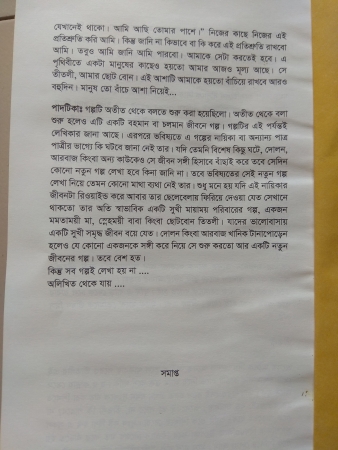 যেখানেই থাকো। আমি আছি তোমার পাশে।" নিজের কাছে নিজের এই
প্রতিশ্রুতি করি আমি। কিন্তু জানি না কিভাবে বা কি করে এই প্রতিশ্রুতি রাখবো
আমি। তবুও আমি জানি আমি পারবো। আমাকে সেটা করতেই হবে। এ
পৃথিবীতে একটা মানুষের কাছেও হয়তো আমার আজও মূল্য আছে। সে
তীতলী, আমার ছোট বোন। এই আশাটি আমাকে হয়তো বাঁচিয়ে রাখবে আরও
বহুদিন। মানুষ তো বাঁচে আশা নিয়েই...
পাদটিকাঃ গল্পটি অতীত থেকে বলতে শুরু করা হয়েছিলো। অতীত থেকে বলা
শুরু হলেও এটি একটি বহমান বা চলমান জীবনে গল্প। গল্পটির এই পর্যন্তই
লেখিকার জানা আছে। এরপরে ভবিষ্যতে এ গল্পের নায়িকা বা অন্যান্য পাত্র
পাত্রীর ভাগ্যে কি ঘটবে জানা নেই তার। যদি তেমনি বিশেষ কিছু ঘটে, দোলন,
আরবাজ কিংবা অন্য কাউকেও সে জীবন সঙ্গী হিসাবে বাঁছাই করে তবে সেদিন
কোনো নতুন গল্প লেখা হবে কিনা জানি না। তবে ভবিষ্যতের সেই নতুন গল্প
লেখা নিয়ে তেমন কোনো মাথা ব্যথা নেই তার। শুধু মনে হয় যদি এই নায়িকার
জীবনটা রিওয়াইন্ড করে আবার তার ছেলেবেলায় ফিরিয়ে দেওয়া যেত সেখানে
থাকতো তার অতি স্বাভাবিক একটি সুখী মায়াময় পরিবারের গল্প, একজন
মমতাময়ী মা, স্নেহময়ী বাবা কিংবা ছোটবোন তিতলী। যাদের ভালোবাসায়
একটি সুখী সমৃদ্ধ জীবন বয়ে যেত। দোলন কিংবা আরবাজ খানিক টানাপোড়েন
হলেও যে কোনো একজনকে সঙ্গী করে নিয়ে সে শুরু করতো আর একটি নতুন
জীবনের গল্প। তবে বেশ হত।
কিন্তু সব গল্পই লেখা হয় না ....
অলিখিত থেকে যায় ....
সমাপ্ত